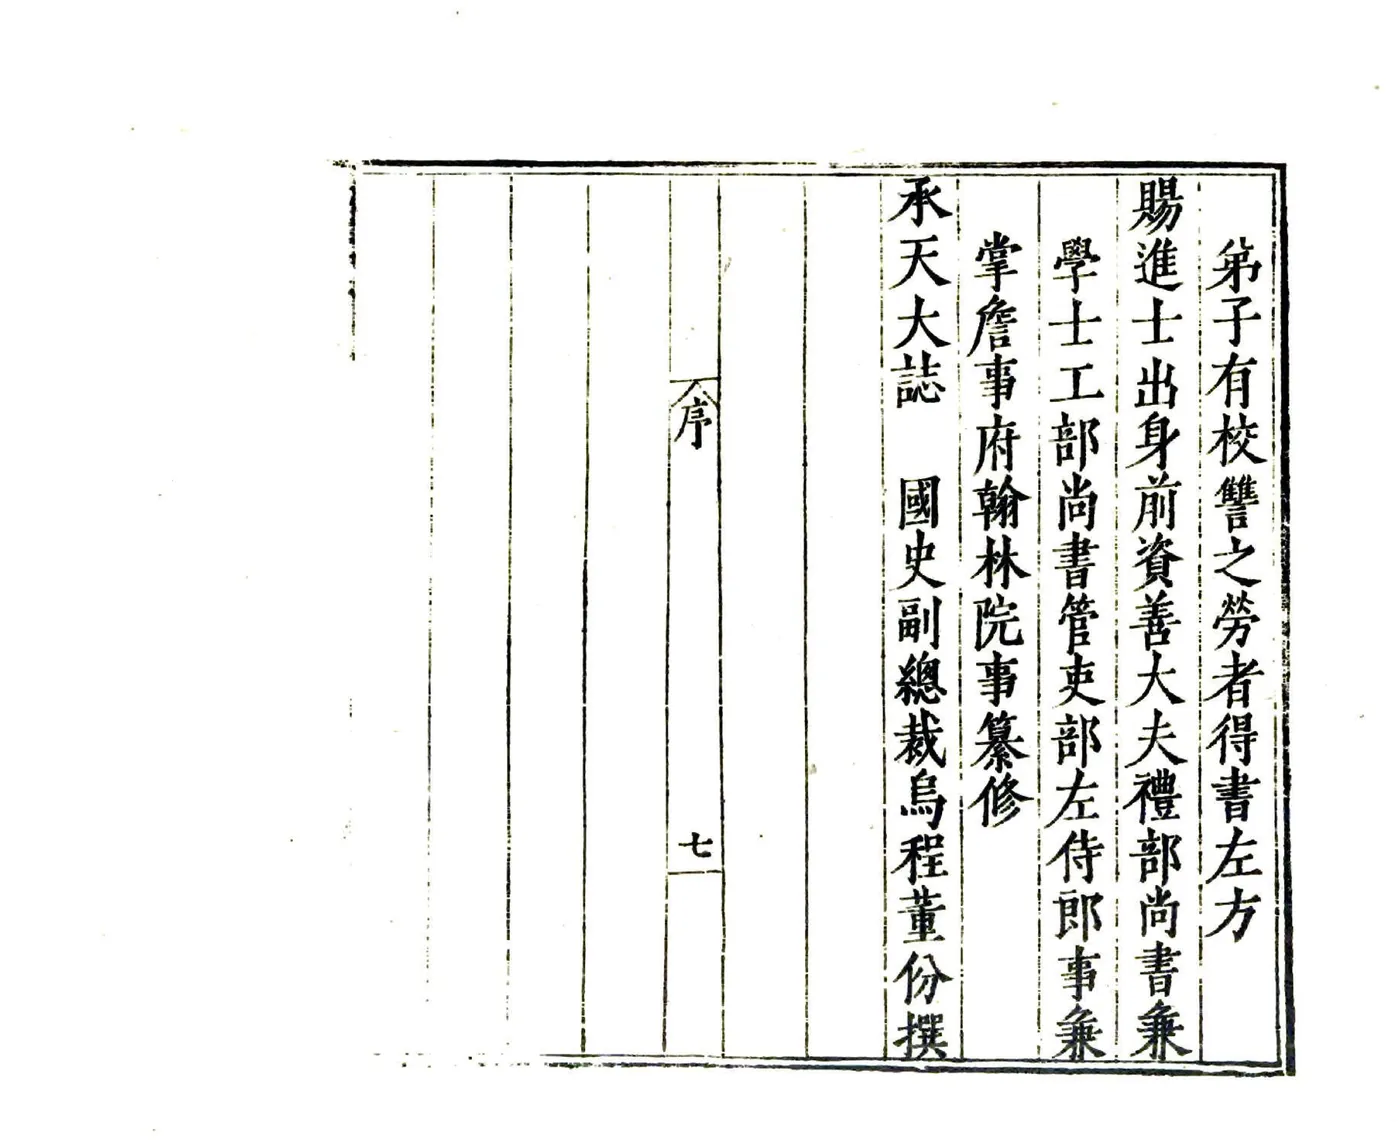 弟子有校讐之勞者得書左方
賜進士出身前資善大夫禮部尚書兼
學士工部尚書管吏部左侍郎事兼
掌詹事府翰林院事纂修
承天大誌　國史副總裁烏程董份撰
序
七